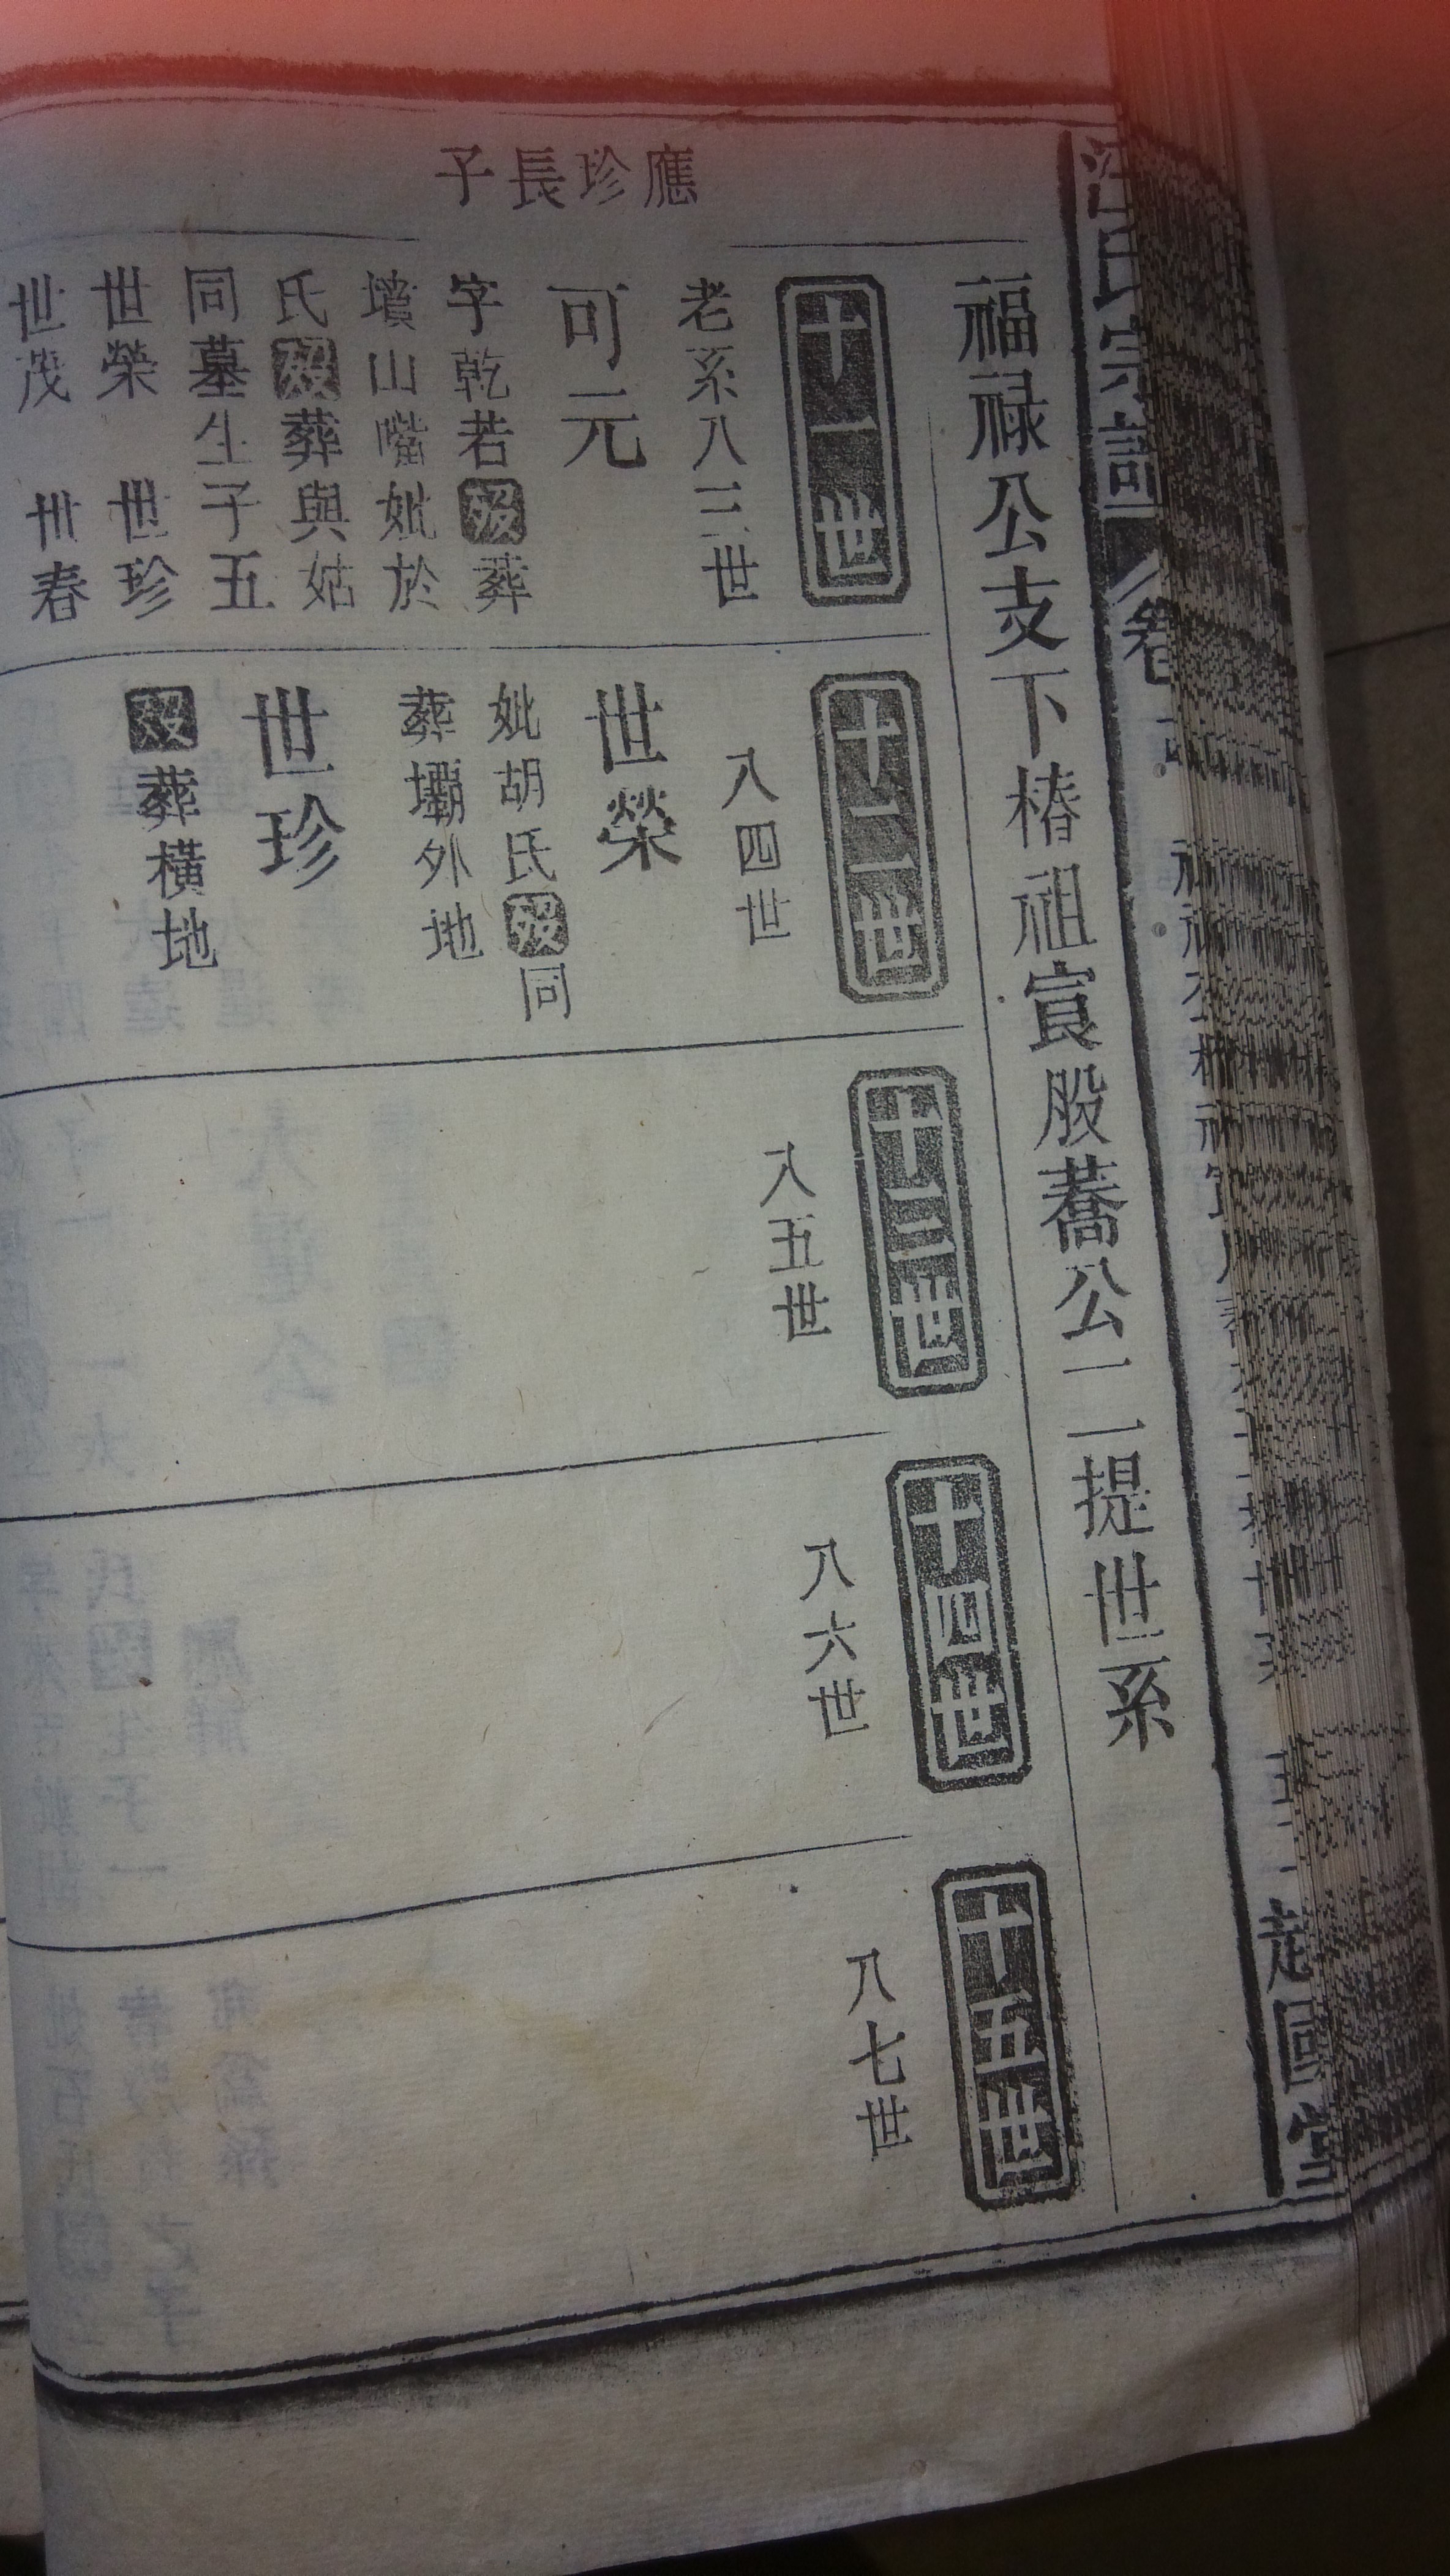 汪氏宗譜
卷
福祿公支下椿祖㝗股蕎公一二提世系
應珍長子
十一世
老系八三世
可元
字乾若歿葬
墳山嘴妣於
氏歿葬與姑
同墓生子五
世榮 世珍
世茂 世春
十二世
八四世
世榮
妣胡氏歿同
葬壩外地
世珍
歿葬橫地
十三世
八五世
十四世
八六世
十五世
八七世
越國堂